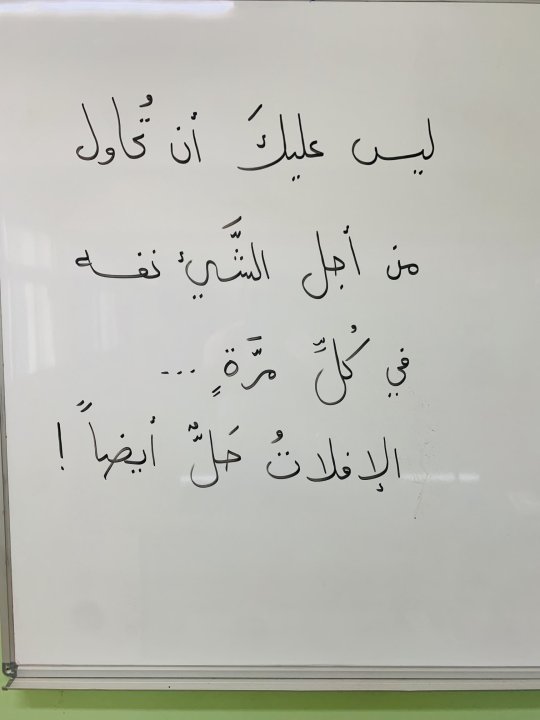 ليس عليكَ أن تُحاول
من أجل الشَّيئ نفسه
في كُلِّ مرَّةٍ ...
الإفلاتُ حَلٌّ أيضاً !